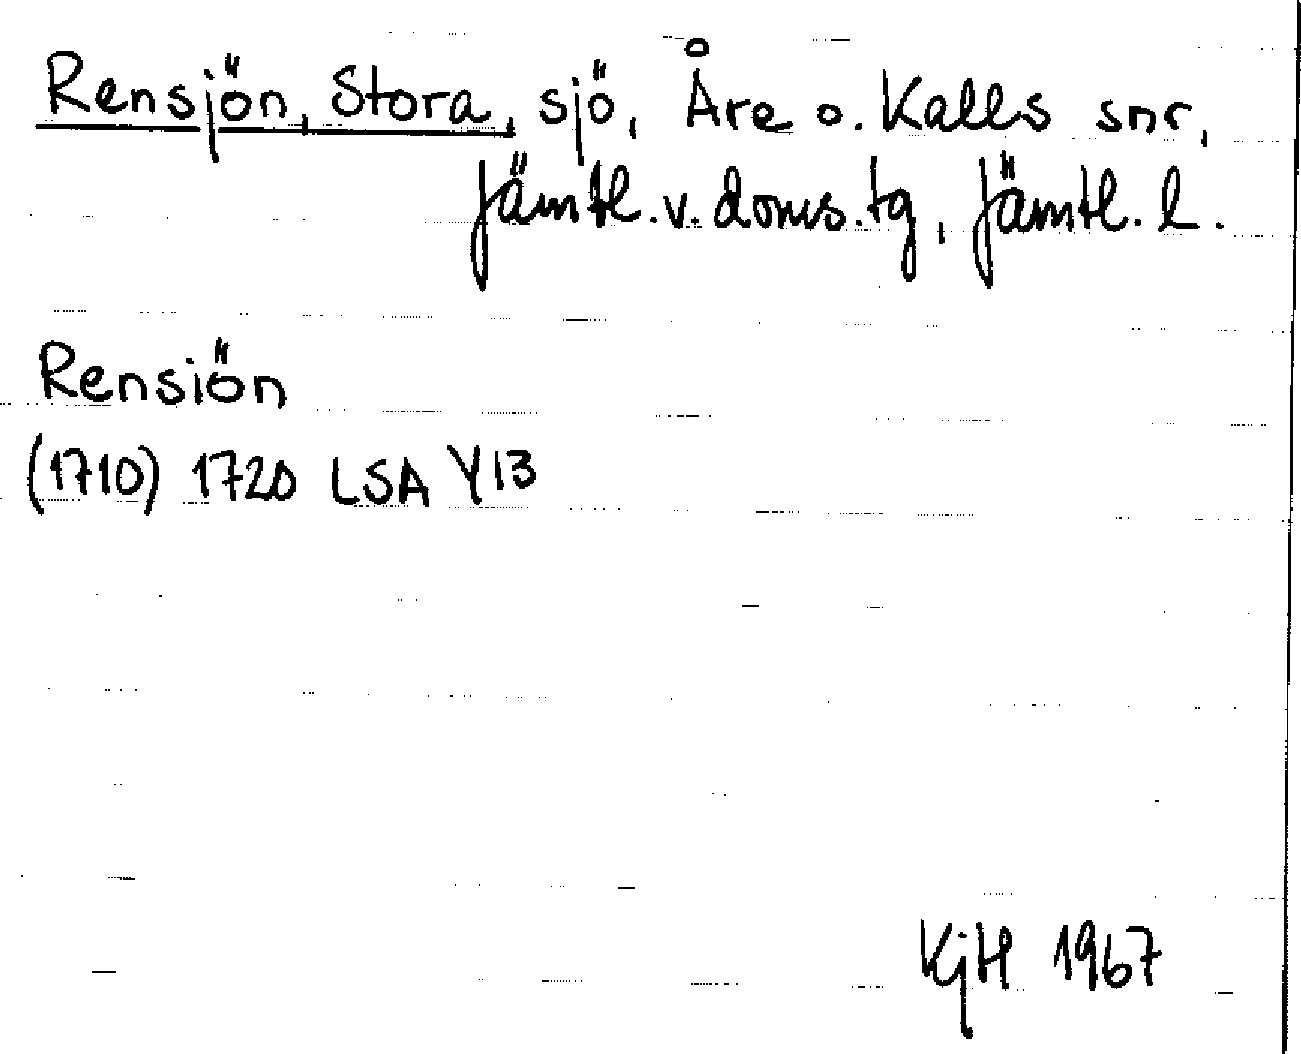 Rensjön, Stora, sjö, Åre o. Kalls snr,
Jämtl. v. doms. tg, Jämtl. l.
Rensiön
(1710) 1720 LSA Y13
KjH 1967